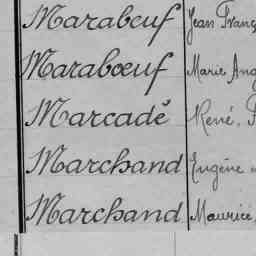 Marabeuf Jean Franç
Marabœuf Marie Ang
Marcadé René, F
Marchand Eugène
Marchand Maurice,